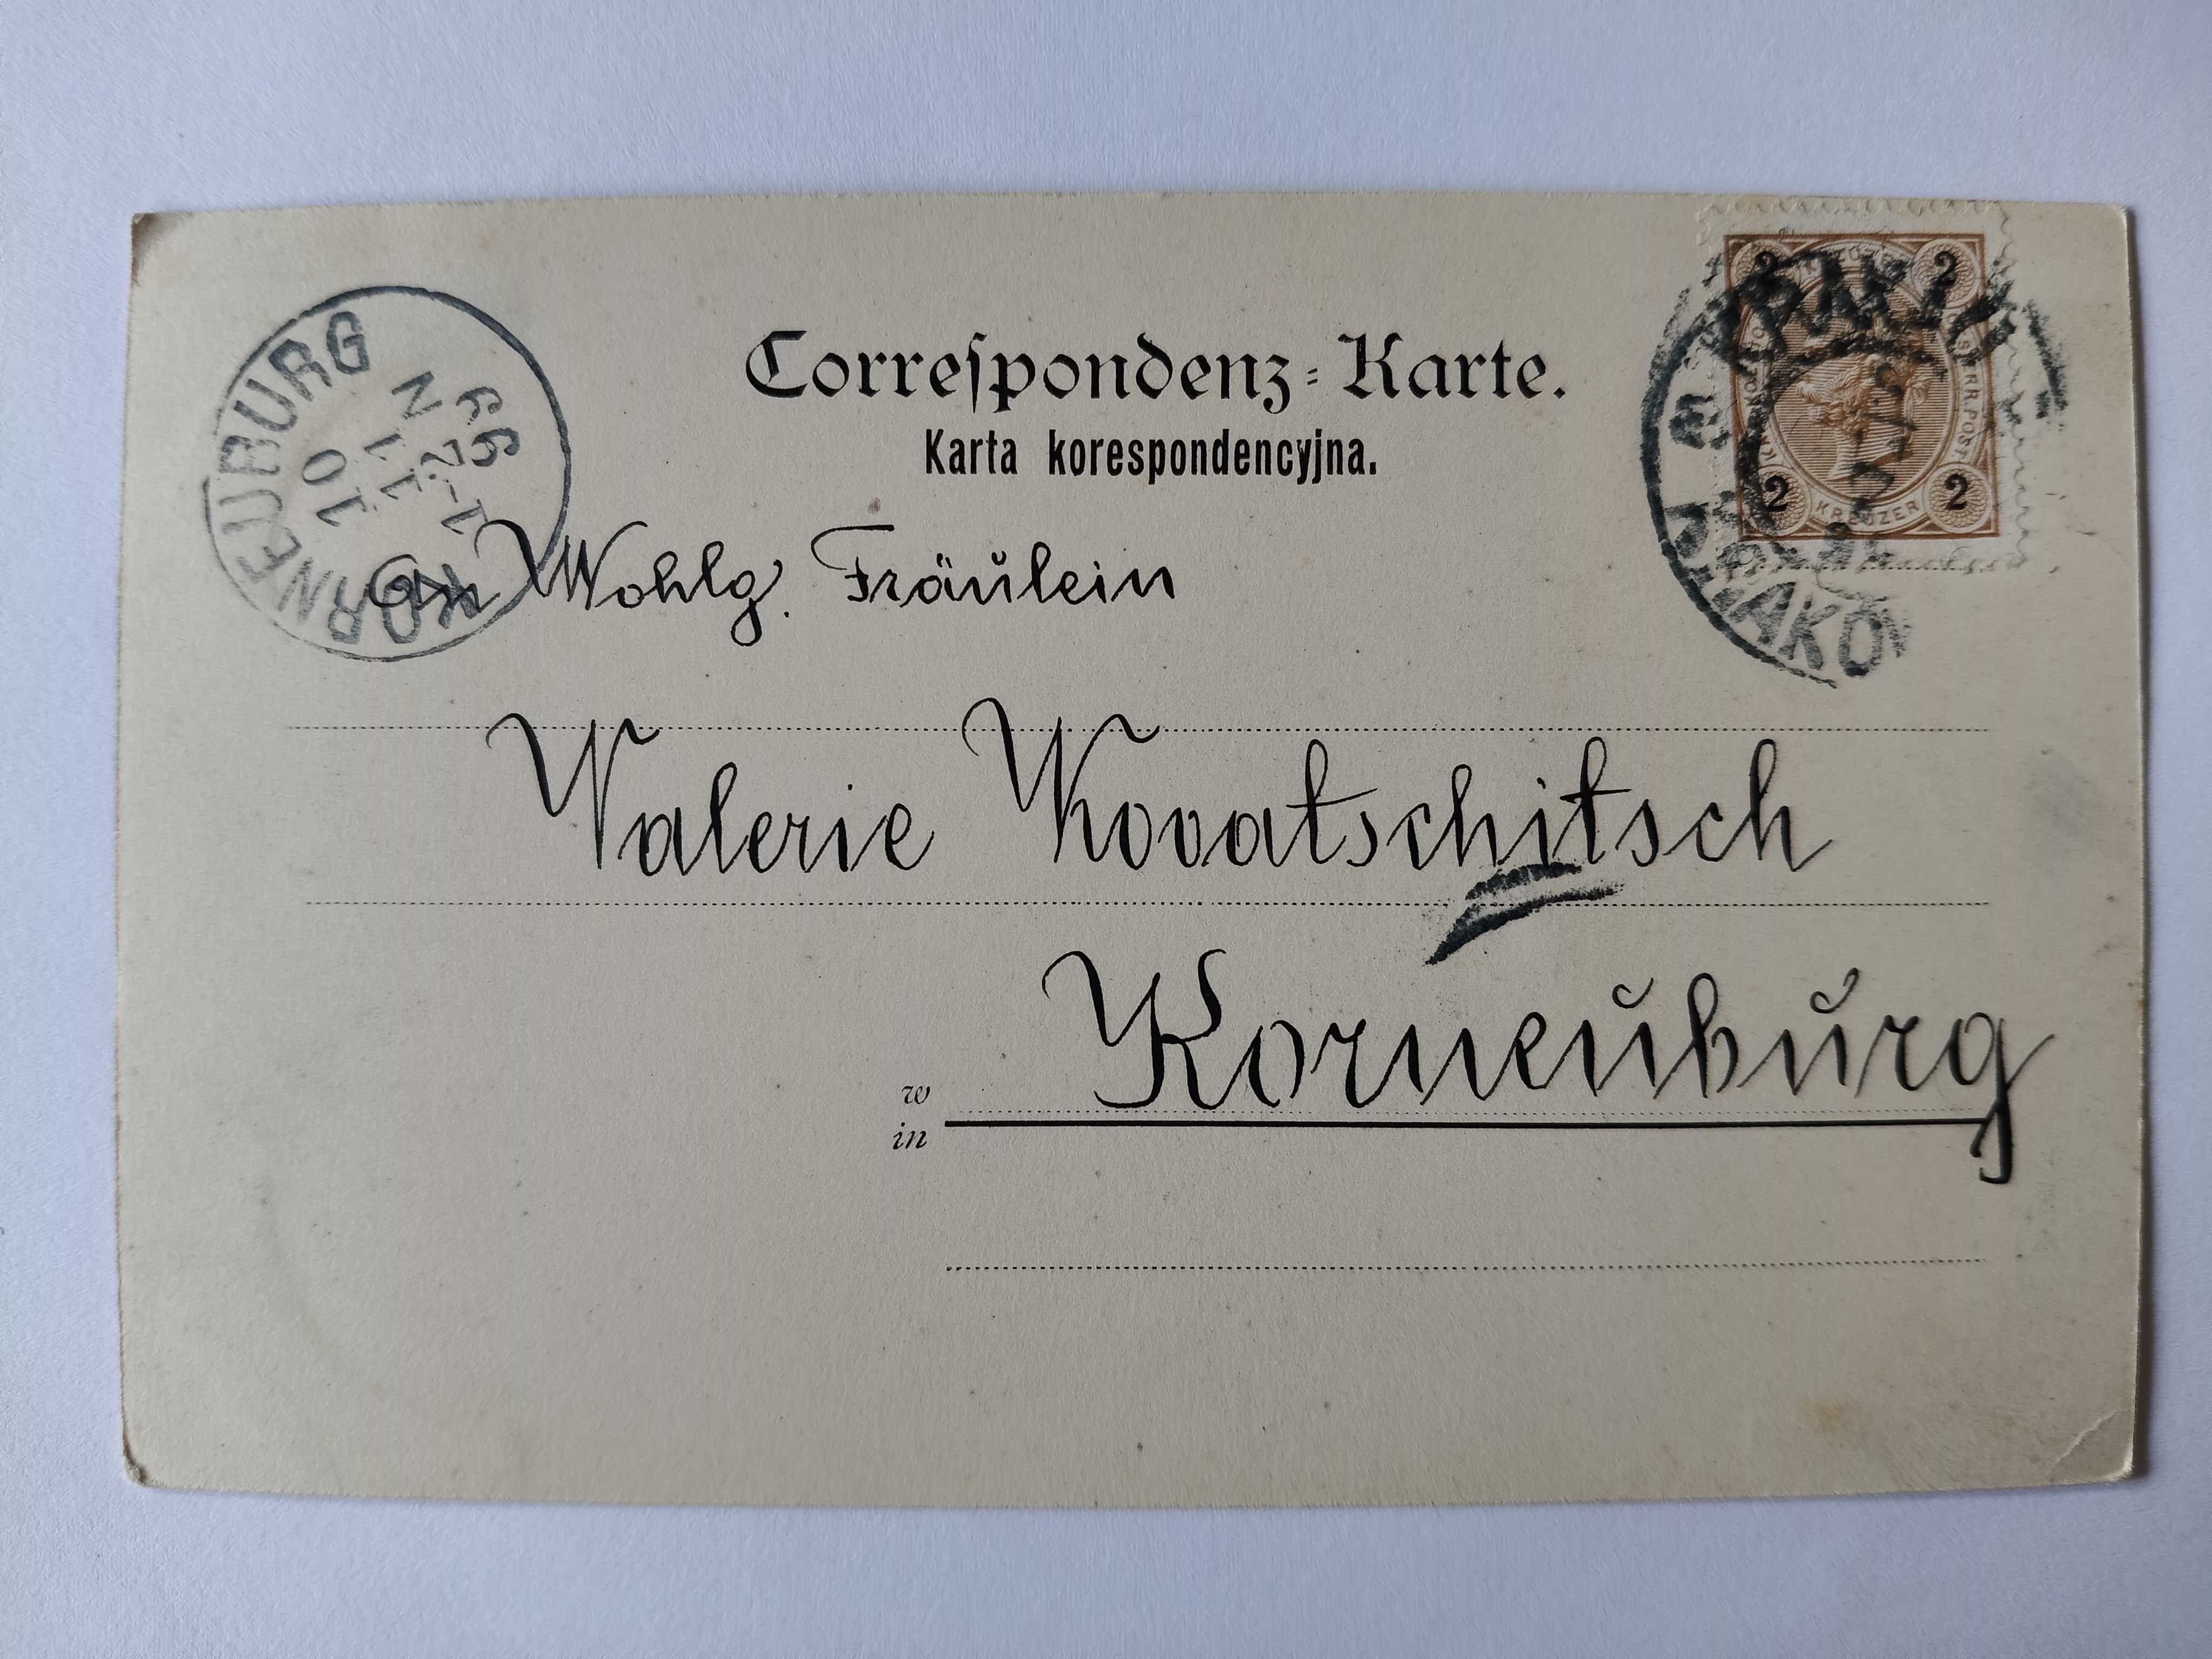 Correſpondenz-Karte.
Karta korespondencyjna.
KORNEUBURG
10
11
N
99
2
KREUZER
2 2
2 2
KRAKO
An Wohlg. Fräulein
Valerie Kovatschitsch
w
in
Korneuburg